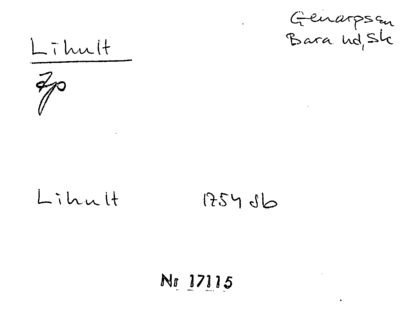 Genarpssn
Bara hd, Sk
Lihult
Lihult 1754 Jb
Nr 17115